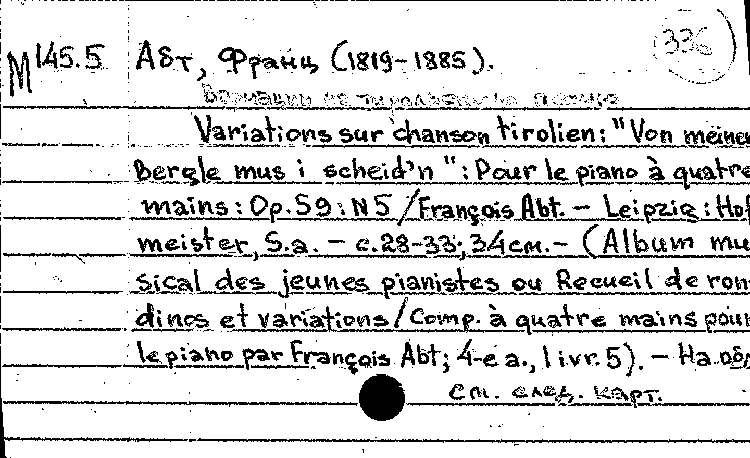 М145.5 Абт, Франц (1819-1885). 336
Вариации на тирольскую
Variations sur chanson tirolien: "Von meinem
Bergle mus i scheid'n": Pour le piano à quatre
mains: Op.59: N5 / François Abt. — Leipzig: Hof
meister, S.a. — с.28-33; 34см. — (Album mu
sical des jeunes pianistes ou Recueil de ron
dinos et variations / Comp. à quatre mains pour
le piano par François Abt; 4-e a., livr. 5). — На обл
См. след. карт.